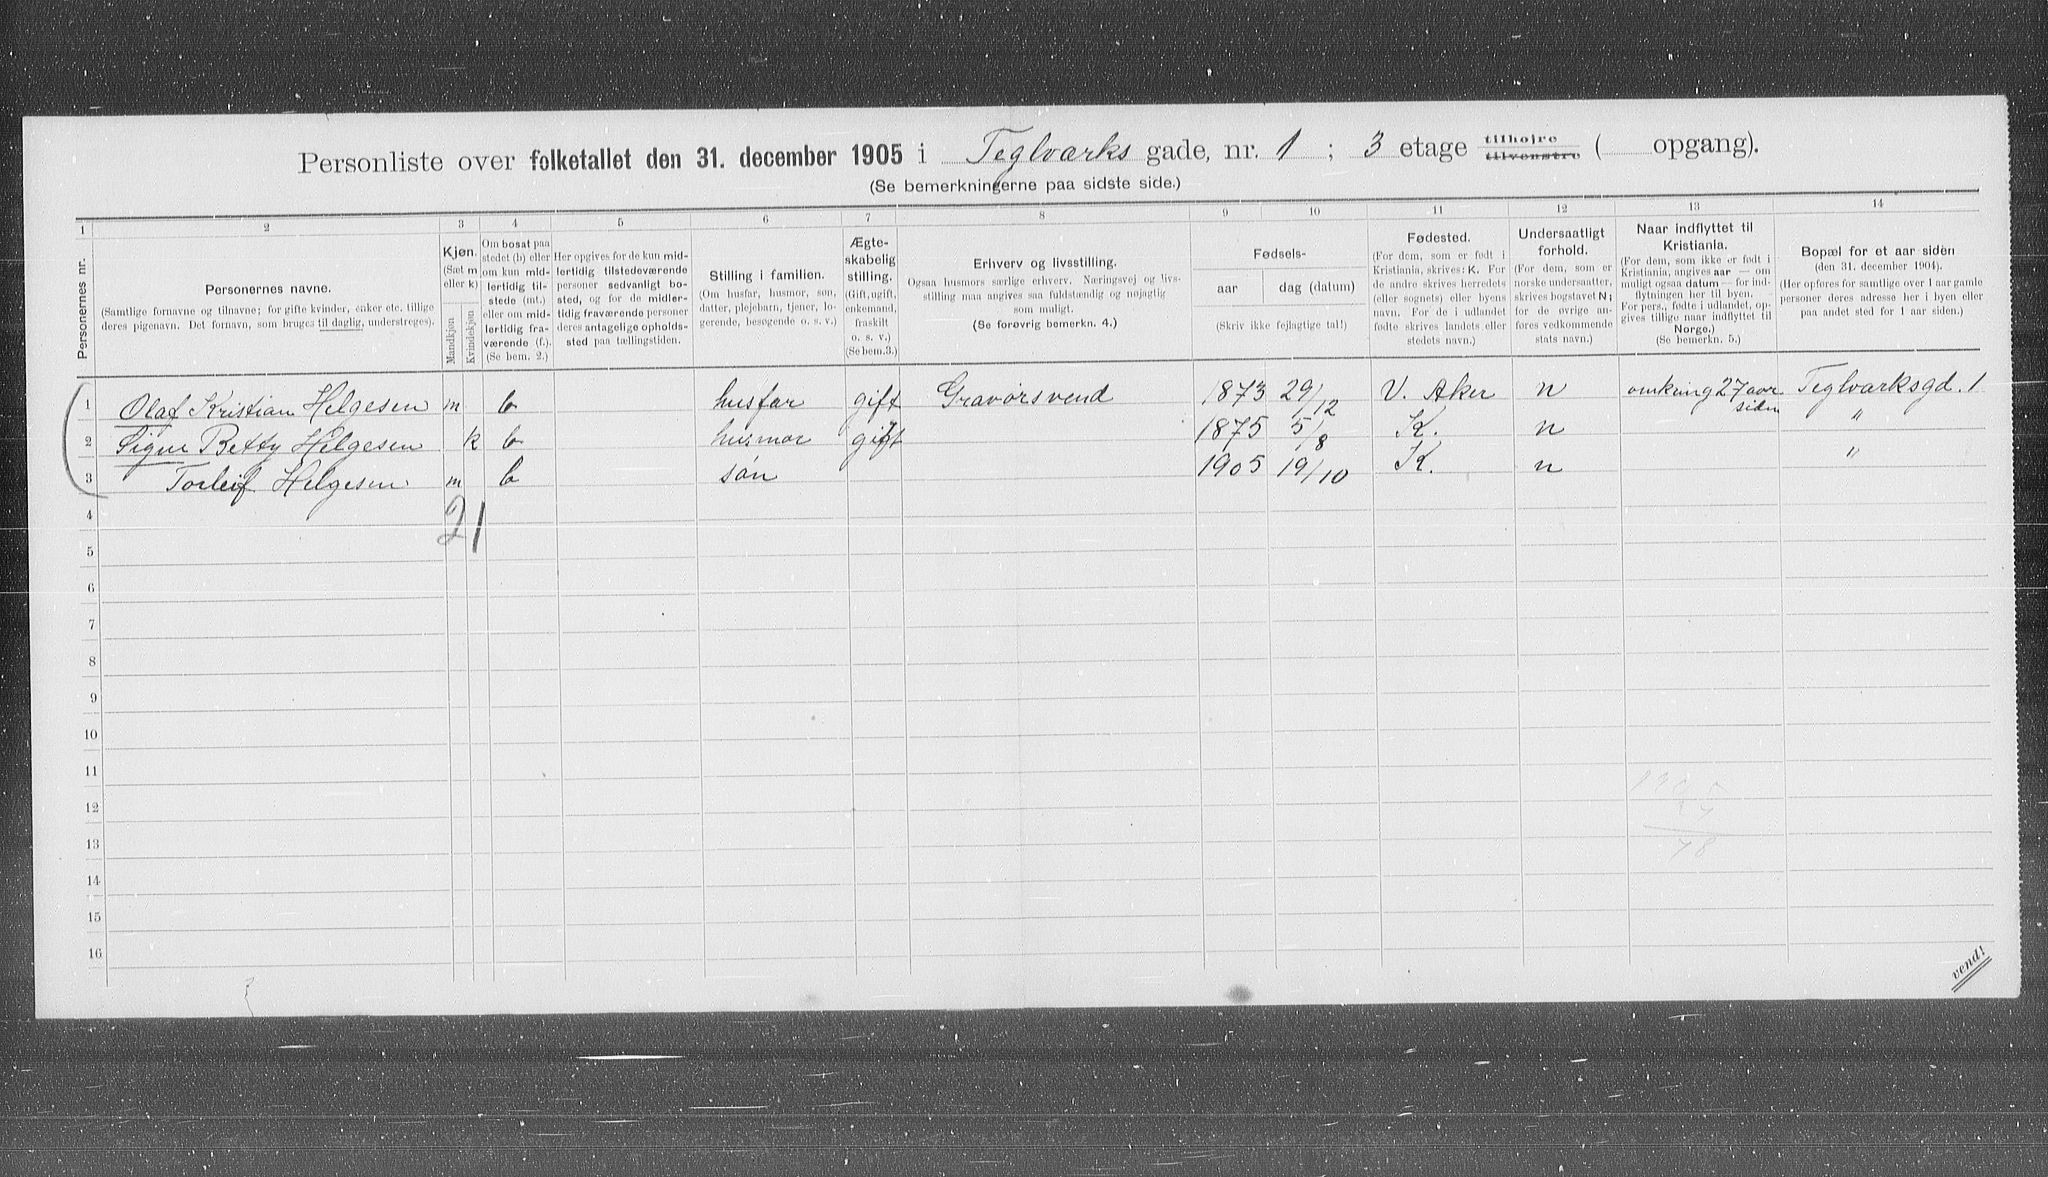 Personliste over folketallet den 31. december 1905 i Teglværks gade, nr. 1 ; 3 etage tilhøjre tilvenstre ( opgang).
(Se bemerkningerne paa sidste side.)
1 2 3 4 5 6 7 8 9 10 11 12 13 14
Personernes nr.
Personernes navne.
(Samtlige fornavne og tilnavne; for gifte kvinder, enker etc. tillige
deres pigenavn. Det fornavn, som bruges til daglig, understreges).
Kjøn.
(Sæt m
eller k)
Mandkjøn
Kvindekjøn
Om bosat paa
stedet (b) eller
om kun mid-
lertidig til-
stede (mt.)
eller om mid-
lertidig fra-
værende (f.).
(Se bem. 2.)
Her opgives for de kun mid-
lertidig tilstedeværende
personer sedvanligt bo-
sted, og for de midler-
tidig fraværende personer
deres antagelige opholds-
sted paa tællingstiden.
Stilling i familien.
(Om husfar, husmor, søn,
datter, plejebarn, tjener, lo-
gerende, besøgende o. s. v.)
Ægte-
skabelig
stilling.
(Gift, ugift,
enkemand,
fraskilt
o. s. v.)
(Se bem. 3.)
Erhverv og livsstilling.
Ogsaa husmors særlige erhverv. Næringsvej og livs-
stilling maa angives saa fuldstændig og nøjagtig
som muligt.
(Se forøvrig bemerkn. 4.)
Fødsels-
aar dag (datum)
(Skriv ikke fejlagtige tal!)
Fødested.
(For dem, som er født i
Kristiania, skrives: K. For
de andre skrives herredets
(eller sognets) eller byens
navn. For de i udlandet
fødte skrives landets eller
stedets navn.)
Undersaatligt
forhold.
(For dem, som er
norske undersaatter,
skrives bogstavet N;
for de øvrige an-
føres vedkommende
stats navn.)
Naar indflyttet til
Kristiania.
(For dem, som ikke er født i
Kristiania, angives aar — om
muligt ogsaa datum — for ind-
flytningen her til byen.
For pers., fødte i udlandet, op-
gives tillige naar indflyttet til
Norge.)
(Se bemerkn. 5.)
Bopæl for et aar siden
(den 31. december 1904).
(Her opføres for samtlige over 1 aar gamle
personer deres adresse her i byen eller
paa andet sted for 1 aar siden.)
1 Olaf Kristian Helgesen m b husfar gift Gravørsvend 1873 29/12 V. Aker n omkring 27 aar siden Teglværksgd. 1
2 Signe Betty Helgesen k b husmor gift 1875 5/8 K. n "
3 Torleif Helgesen m b søn 1905 19/10 K. n "
4 21
5
6
7
8
9
10
11
12
13
14
15
16
78
vend!